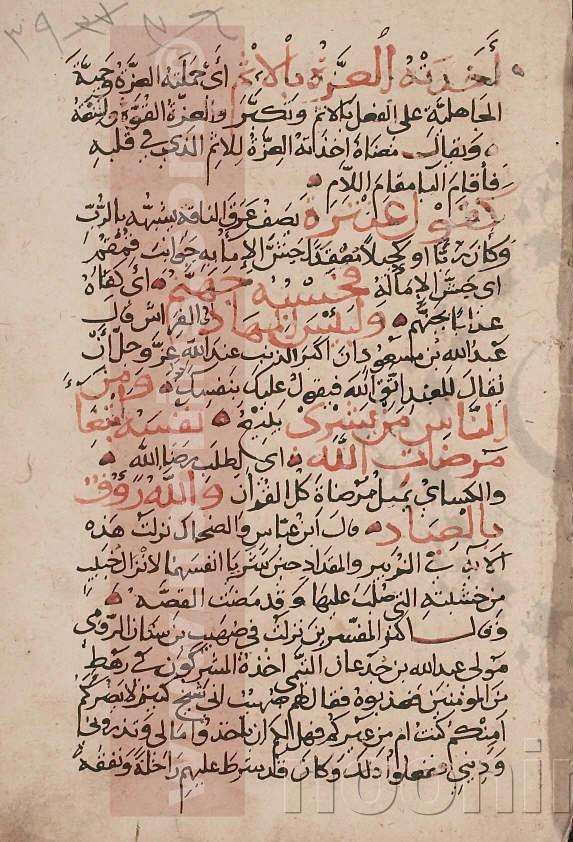 أخذته العزة بالاثم أي حملته العزة وحمية
الجاهلية على الفعل بالاثم وتكبر والعزة القوة والمنعة
ويقال معناه اخذته العزة للاثم الذي في قلبه
فأقام البا مقام اللام
كقول عنترة يصف عرق الناقة يشبهه بالرب
وكأن ربا او كحيلا معقدا حش الإماء به جوانب قمقم
اي حش الإماء له فحسبه جهنم اي كفاه
عذابا جهنم ولبئس المهاد اي الفراش قال
عبد الله بن مسعود ان اكبر الذنب عند الله عز وجل أن
يقال للعبد اتق الله فيقول عليك بنفسك ومن
الناس من يشري يبيع نفسه ابتغاء
مرضات الله اي لطلب رضا الله
والكسائي يميل مرضاة كل القرآن والله رؤف
بالعباد قال ابن عباس والضحاك نزلت هذه
الآية في الزبير والمقداد حين شريا انفسهما لانزال خبيب
من خشبته التي صلب عليها وقد مضت القصة
وقال اكثر المفسرين نزلت في صهيب بن سنان الرومي
مولى عبد الله بن جدعان التيمي اخذه المشركون في رهط
من المومنين فعذبوه فقال لهم صهيب اني شيخ كبير لا يضركم
امنكم كنت ام من غيركم فهل لكم ان تاخذوا مالي وتذروني
وديني ففعلوا ذلك وكان قد شرط عليهم راحلة ونفقة
noorin